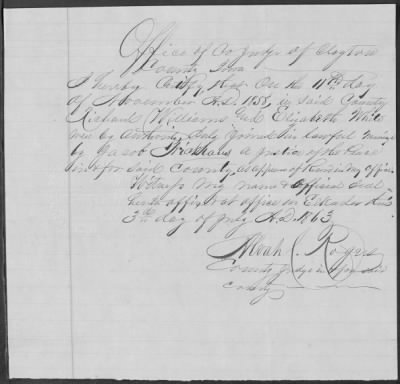 Office of Co Judge of Clayton
County Iowa
I hereby Certify that on the 11th day
of November A.D. 1858, in said County
Richard Williams and Elizabeth White
were by authority duly joined in lawful marriage
by Jacob a Justice of the Peace
in & for said County, as appears of Record in my office
Witness my name & official seal
hereto affixed at office in Elkader this
3rd day of July A.D. 1863
Noah C. Rogers
County Judge in & for said
County